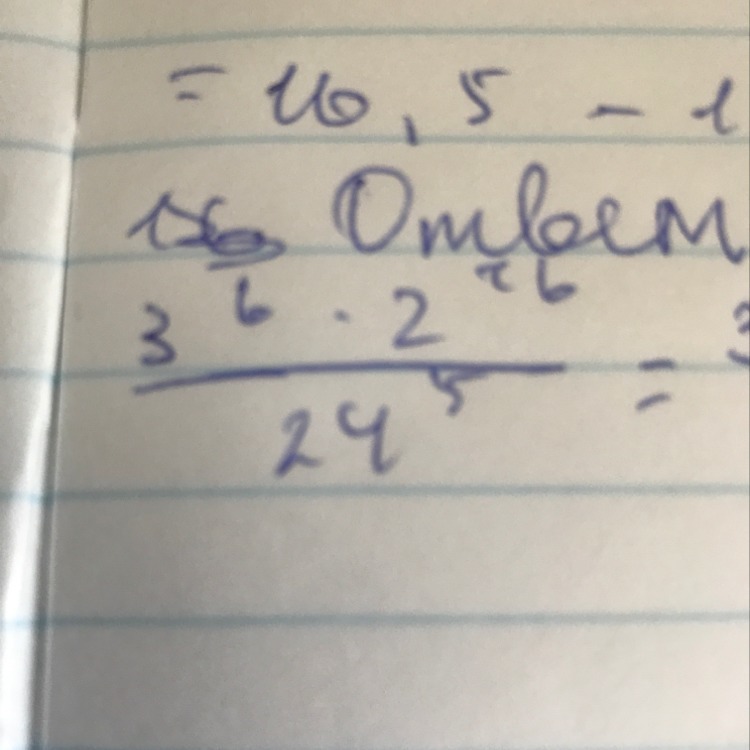 = 16,5 - 1
Ответ
3^6 · 2^16
24^5 = 3